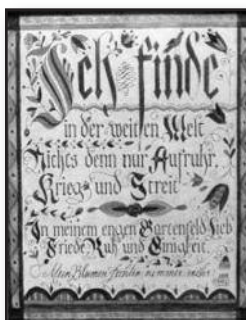 Ich finde
in der weiten Welt
Nichts denn nur Aufruhr,
Krieg und Streit
In meinem engen Gartenfeld
Friede Ruh und Einigkeit.
Mein Blumen